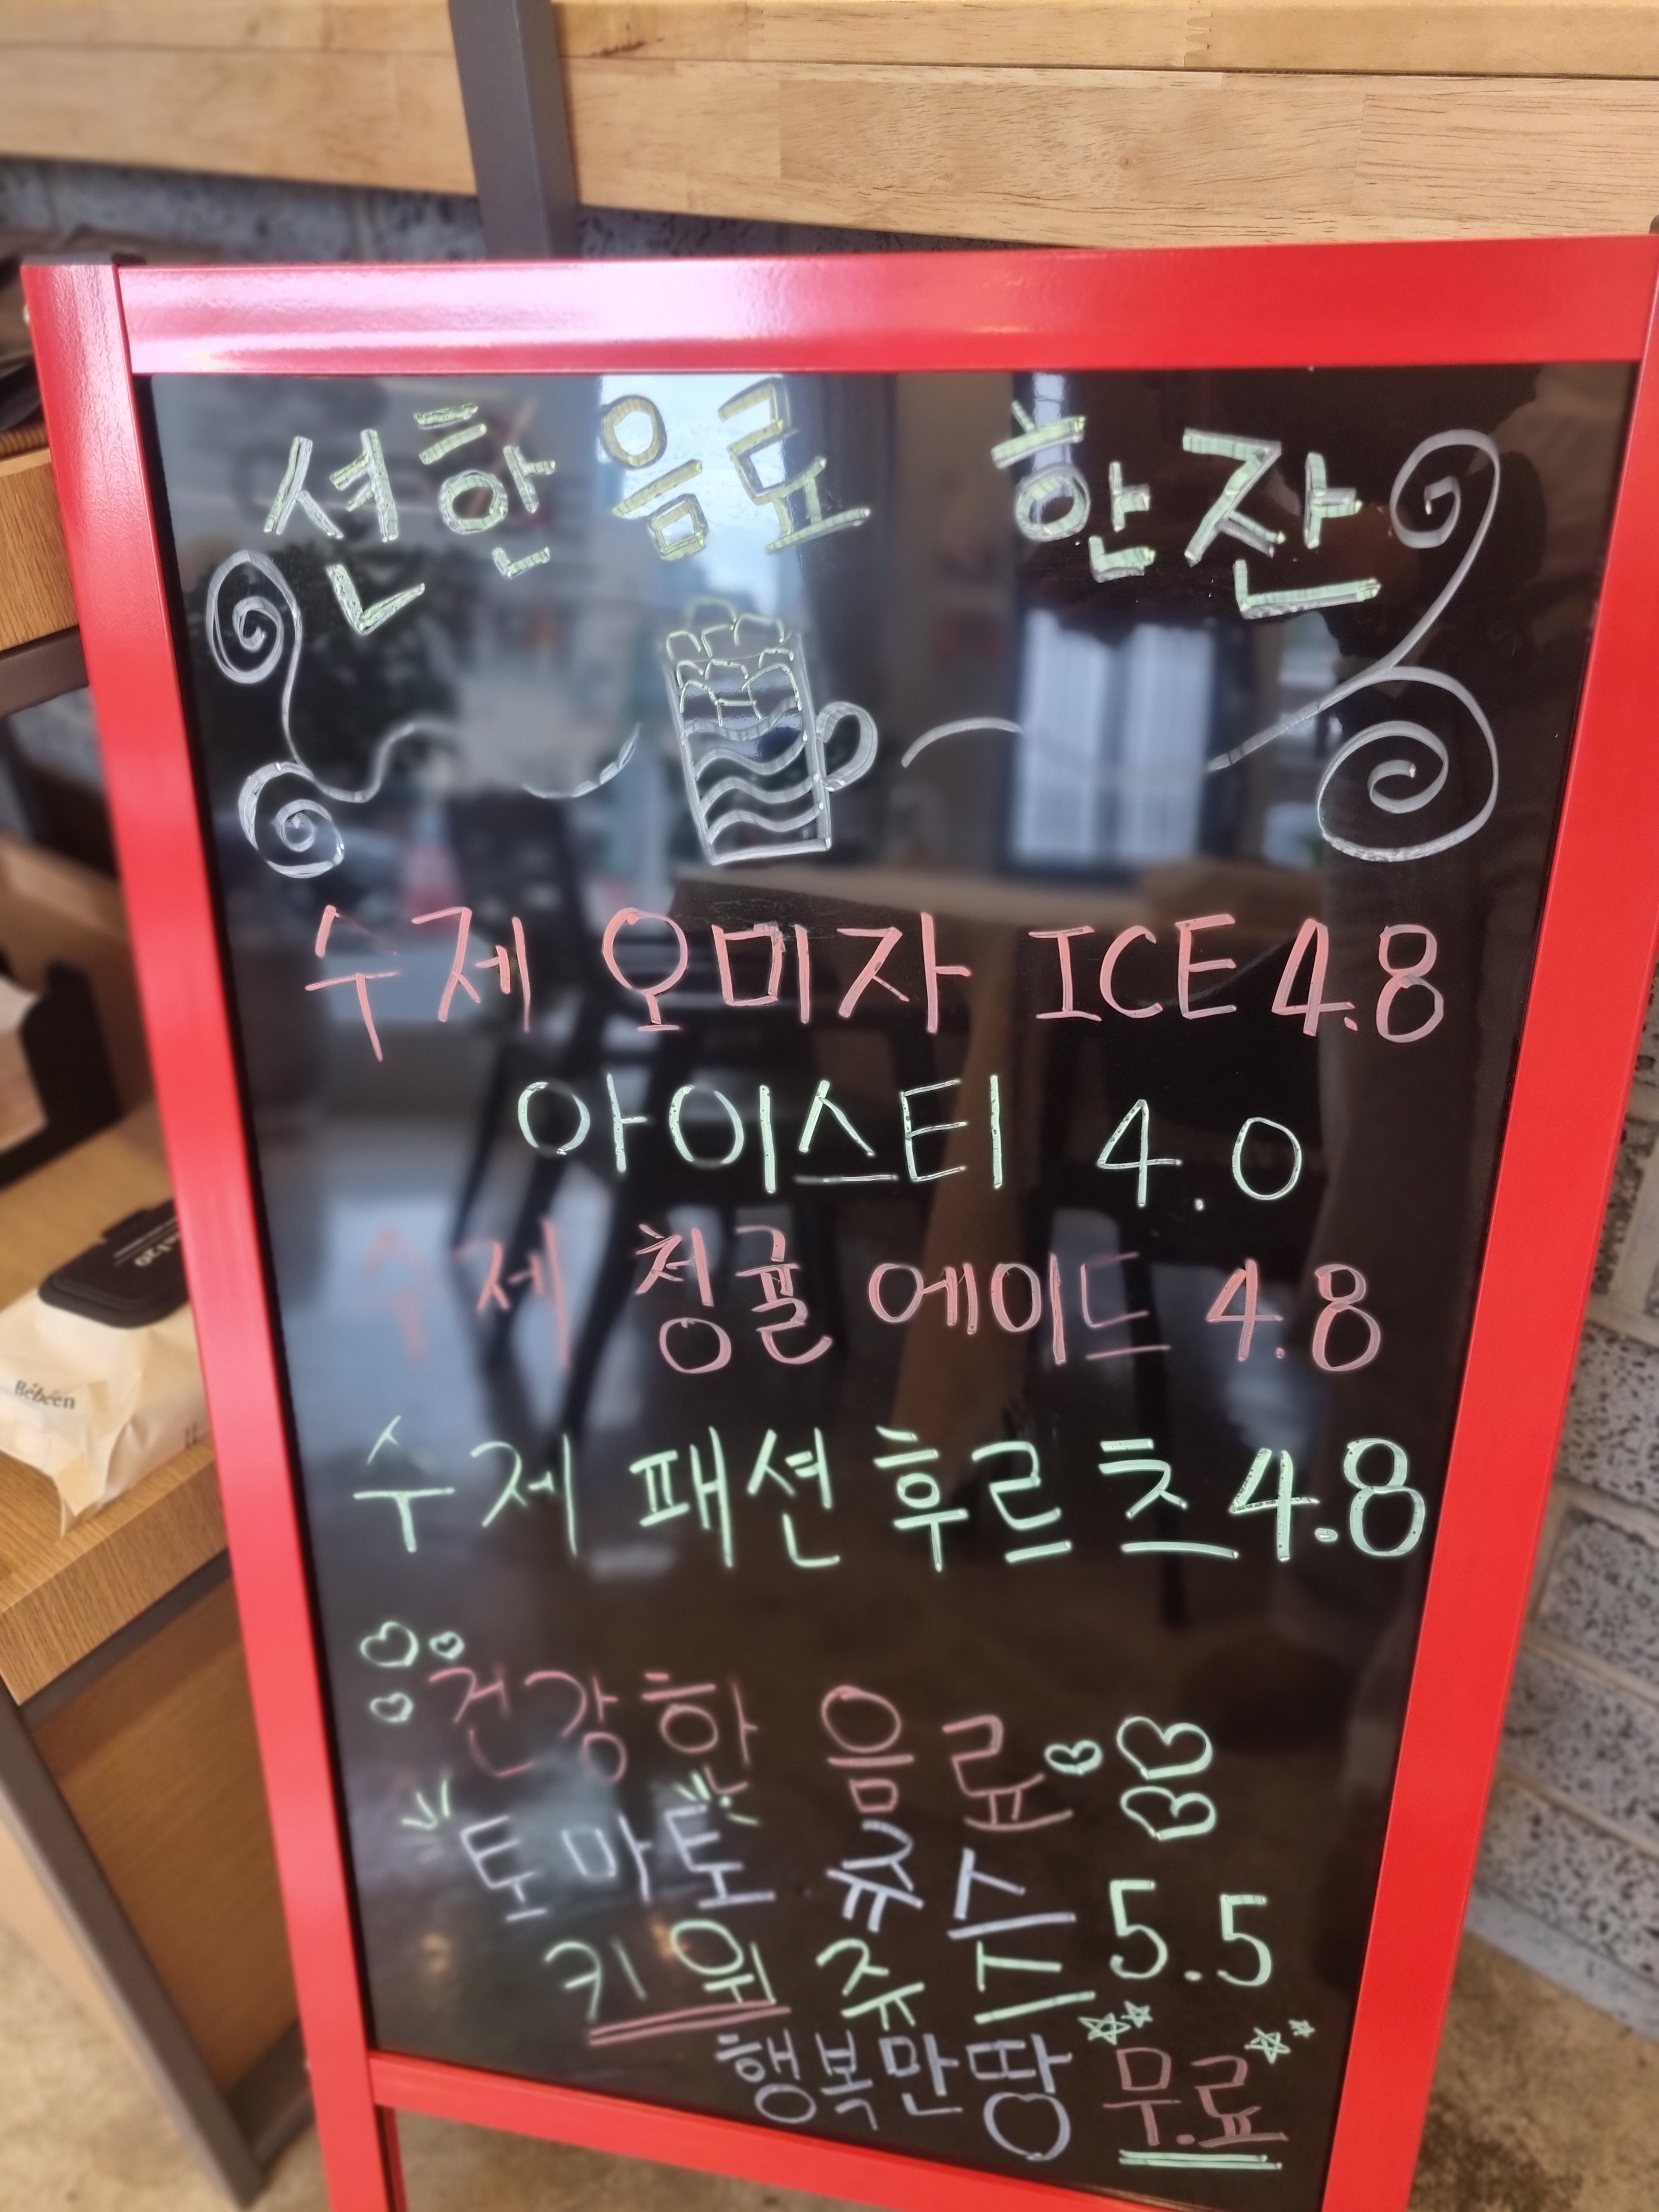 션한 음료 한잔
수제 오미자 ICE 4.8
아이스티 4.0
수제 청귤 에이드 4.8
수제 패션후르츠 4.8
건강한 음료
토마토 쥬스
키위 쥬스 5.5
행복만땅 무료
Bebeen